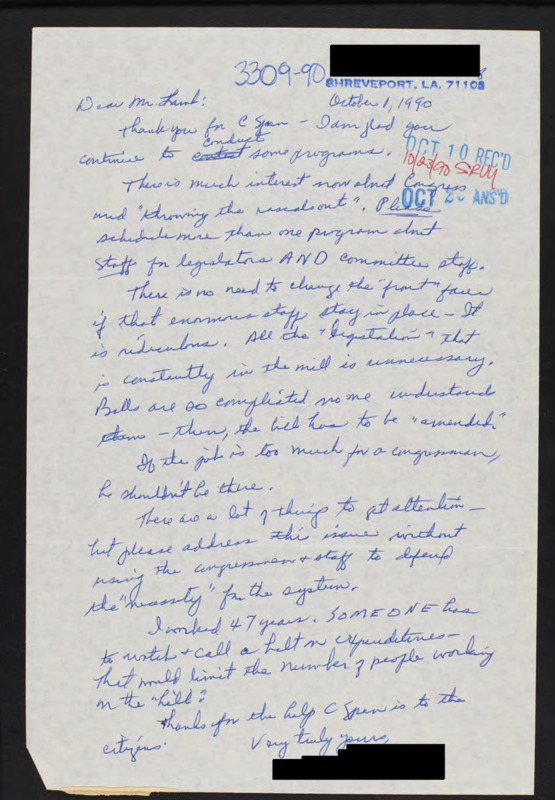 3309-90
SHREVEPORT, LA. 71108
October 1, 1990
Dear Mr. Lamb:
Thank you for C Span - I am glad you
continue to conduct some programs.
OCT 10 REC'D
10/23/90
OCT 2 ANS'D
There is much interest now about Congress
and "throwing the rascals out". Please
schedule more than one program about
staff for legislators AND committee staff.
There is no need to change the "front" faces
if that enormous staff stay in place - It
is ridiculous. All the "legislation" that
is constantly in the mill is unnecessary.
Bills are so complicated no one understands
them - then, the bill has to be "amended."
If the job is too much for a congressman,
he shouldn't be there.
There are a lot of things to get attention -
but please address this issue without
using the congressmen + staff to defend
the "necessity" for the system.
I worked 47 years. SOMEONE has
to watch + call a halt on expenditures -
that would limit the number of people working
on the "hill".
Thanks for the help C Span is to the
citizens.
Very truly yours,